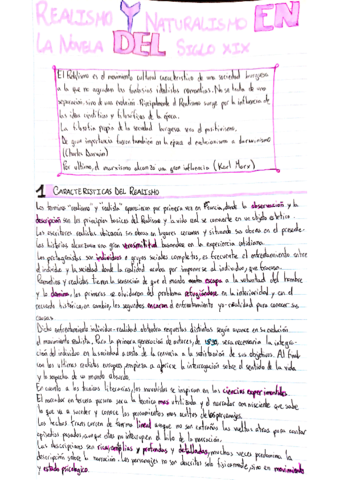 REALISMO Y NATURALISMO EN
LA NOVELA DEL SIGLO XIX
El Realismo es el movimiento cultural característico de una sociedad burguesa
a la que no agradan las fantasías idealistas románticas. No se trata de una
separación sino de una evolución. Principalmente el Realismo surge por la influencia de
las ideas científicas y filosóficas de la época.
La filosofía propia de la sociedad burguesa será el positivismo.
De gran importancia fueron también en la época el evolucionismo o darwinismo
(Charles Darwin)
Por último, el marxismo alcanzó una gran influencia (Karl Marx)
1 CARACTERÍSTICAS DEL REALISMO
Los términos "realismo" y "realista" aparecieron por primera vez en Francia, donde la observación y la
descripción son los principios básicos del Realismo y la vida real se convierte en un objeto estético.
Los escritores realistas ubicarán sus obras en lugares cercanos y situando sus obras en el presente.
Las historias alcanzan una gran verosimilitud basandose en la experiencia cotidiana.
Los protagonistas son individuos o grupos sociales completos, es frecuente el enfrentamiento entre
el individuo y la sociedad donde la realidad acaba por imponerse al individuo, que fracasa.
Románticos y realistas tienen la sensación de que el mundo escapa a la voluntad del hombre
y lo domina: los primeros se olvidaron del problema refugiándose en la interioridad y en el
recuerdo histórico, en cambio, los segundos encaran el enfrentamiento yo-realidad para conocer sus
causas
Dicho enfrentamiento individuo-realidad obtendrá respuestas distintas según avance en su evolución
el movimiento realista. Para la primera generación de autores, de 1830, será necesaria la integra-
ción del individuo en la sociedad a costa de la renuncia a la satisfacción de sus objetivos. Al final
con los últimos realistas europeos empieza a abrirse la interrogación sobre el sentido de la vida
y la angustia de un mundo absurdo.
En cuanto a las técnicas literarias, los novelistas se inspiran en las ciencias experimentales.
El narrador en tercera persona será la técnica más utilizada y el narrador omnisciente que sabe
lo que va a suceder y conoce los pensamientos más ocultos de los personajes.
Los hechos transcurren de forma lineal aunque no son extrañas las vueltas atrás para contar
episodios pasados, aunque ellas no interrumpen el hilo de la narración.
Las descripciones son ricas, amplias y profundas y detalladas, muchas veces predomina la
descripción sobre la narración. Los personajes no son descritos solo físicamente, sino en movimiento
y estado psicológico.